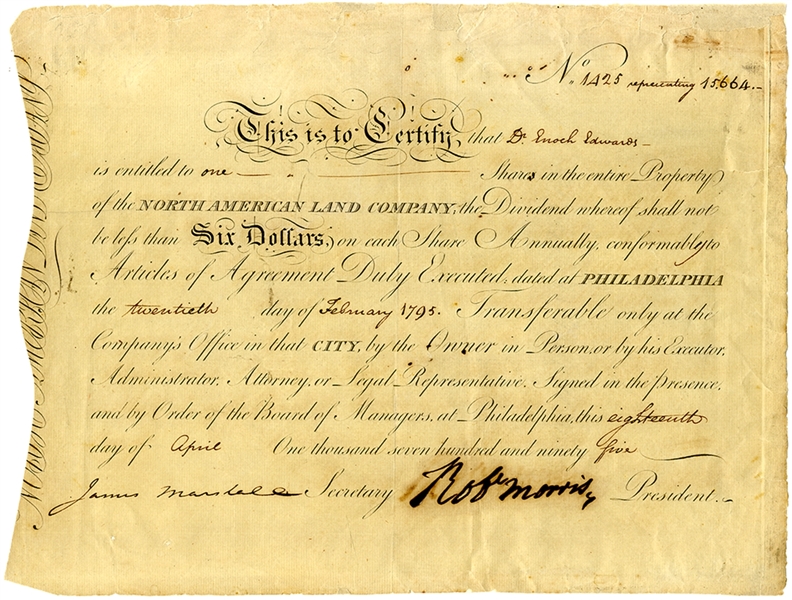 No. 1425 representing 15,664.-
This is to Certify, that Dr. Enoch Edwards
is entitled to one Share in the entire Property
of the NORTH AMERICAN LAND COMPANY, the Dividend whereof shall not
be leſs than Six Dollars, on each Share Annually, conformably to
Articles of Agreement Duly Executed; dated at PHILADELPHIA
the twentieth day of February 1795. Transferable only at the
Company's Office in that CITY, by the Owner in Person, or by his Executor,
Administrator, Attorney, or Legal Representative. Signed in the presence,
and by Order of the Board of Managers, at Philadelphia, this eighteenth
day of April One thousand seven hundred and ninety five
James Marshall Secretary Robt Morris, President.